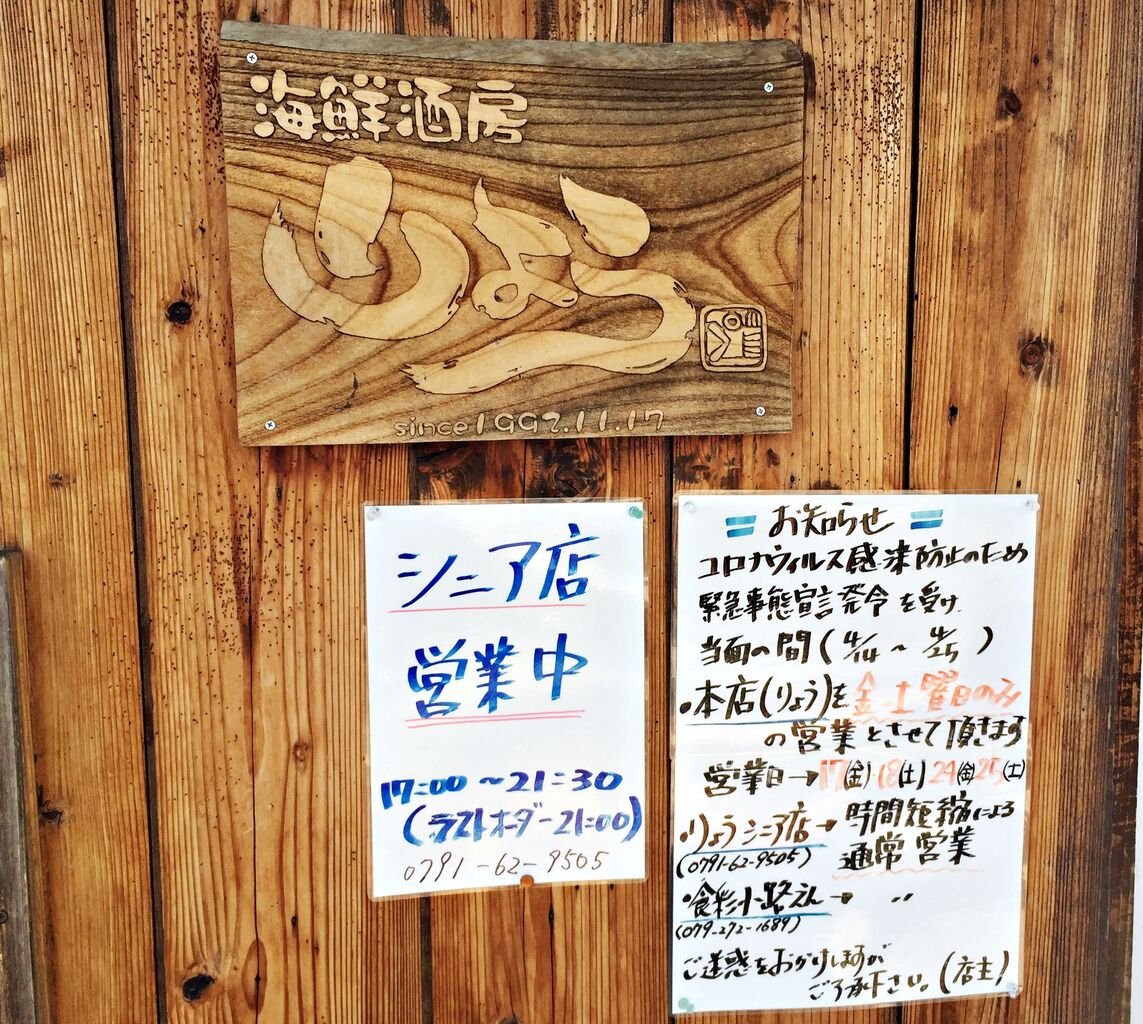 海鮮酒房
りょう
since 1997.11.17
シニア店
営業中
17:00〜21:30
(ラストオーダー21:00)
0791-62-9505
= お知らせ =
コロナウィルス感染防止のため
緊急事態宣言発令を受け
当面の間(4/14〜4/25)
・本店(りょう)を金・土曜日のみ
の営業とさせて頂きます
営業日→17(金)・18(土)24(金)25(土)
・りょうシニア店→時間短縮による
(0791-62-9505) 通常営業
・食彩小路えん→ 〃
(079-272-1689)
ご迷惑をおかけしますが
ご了承下さい。(店主)